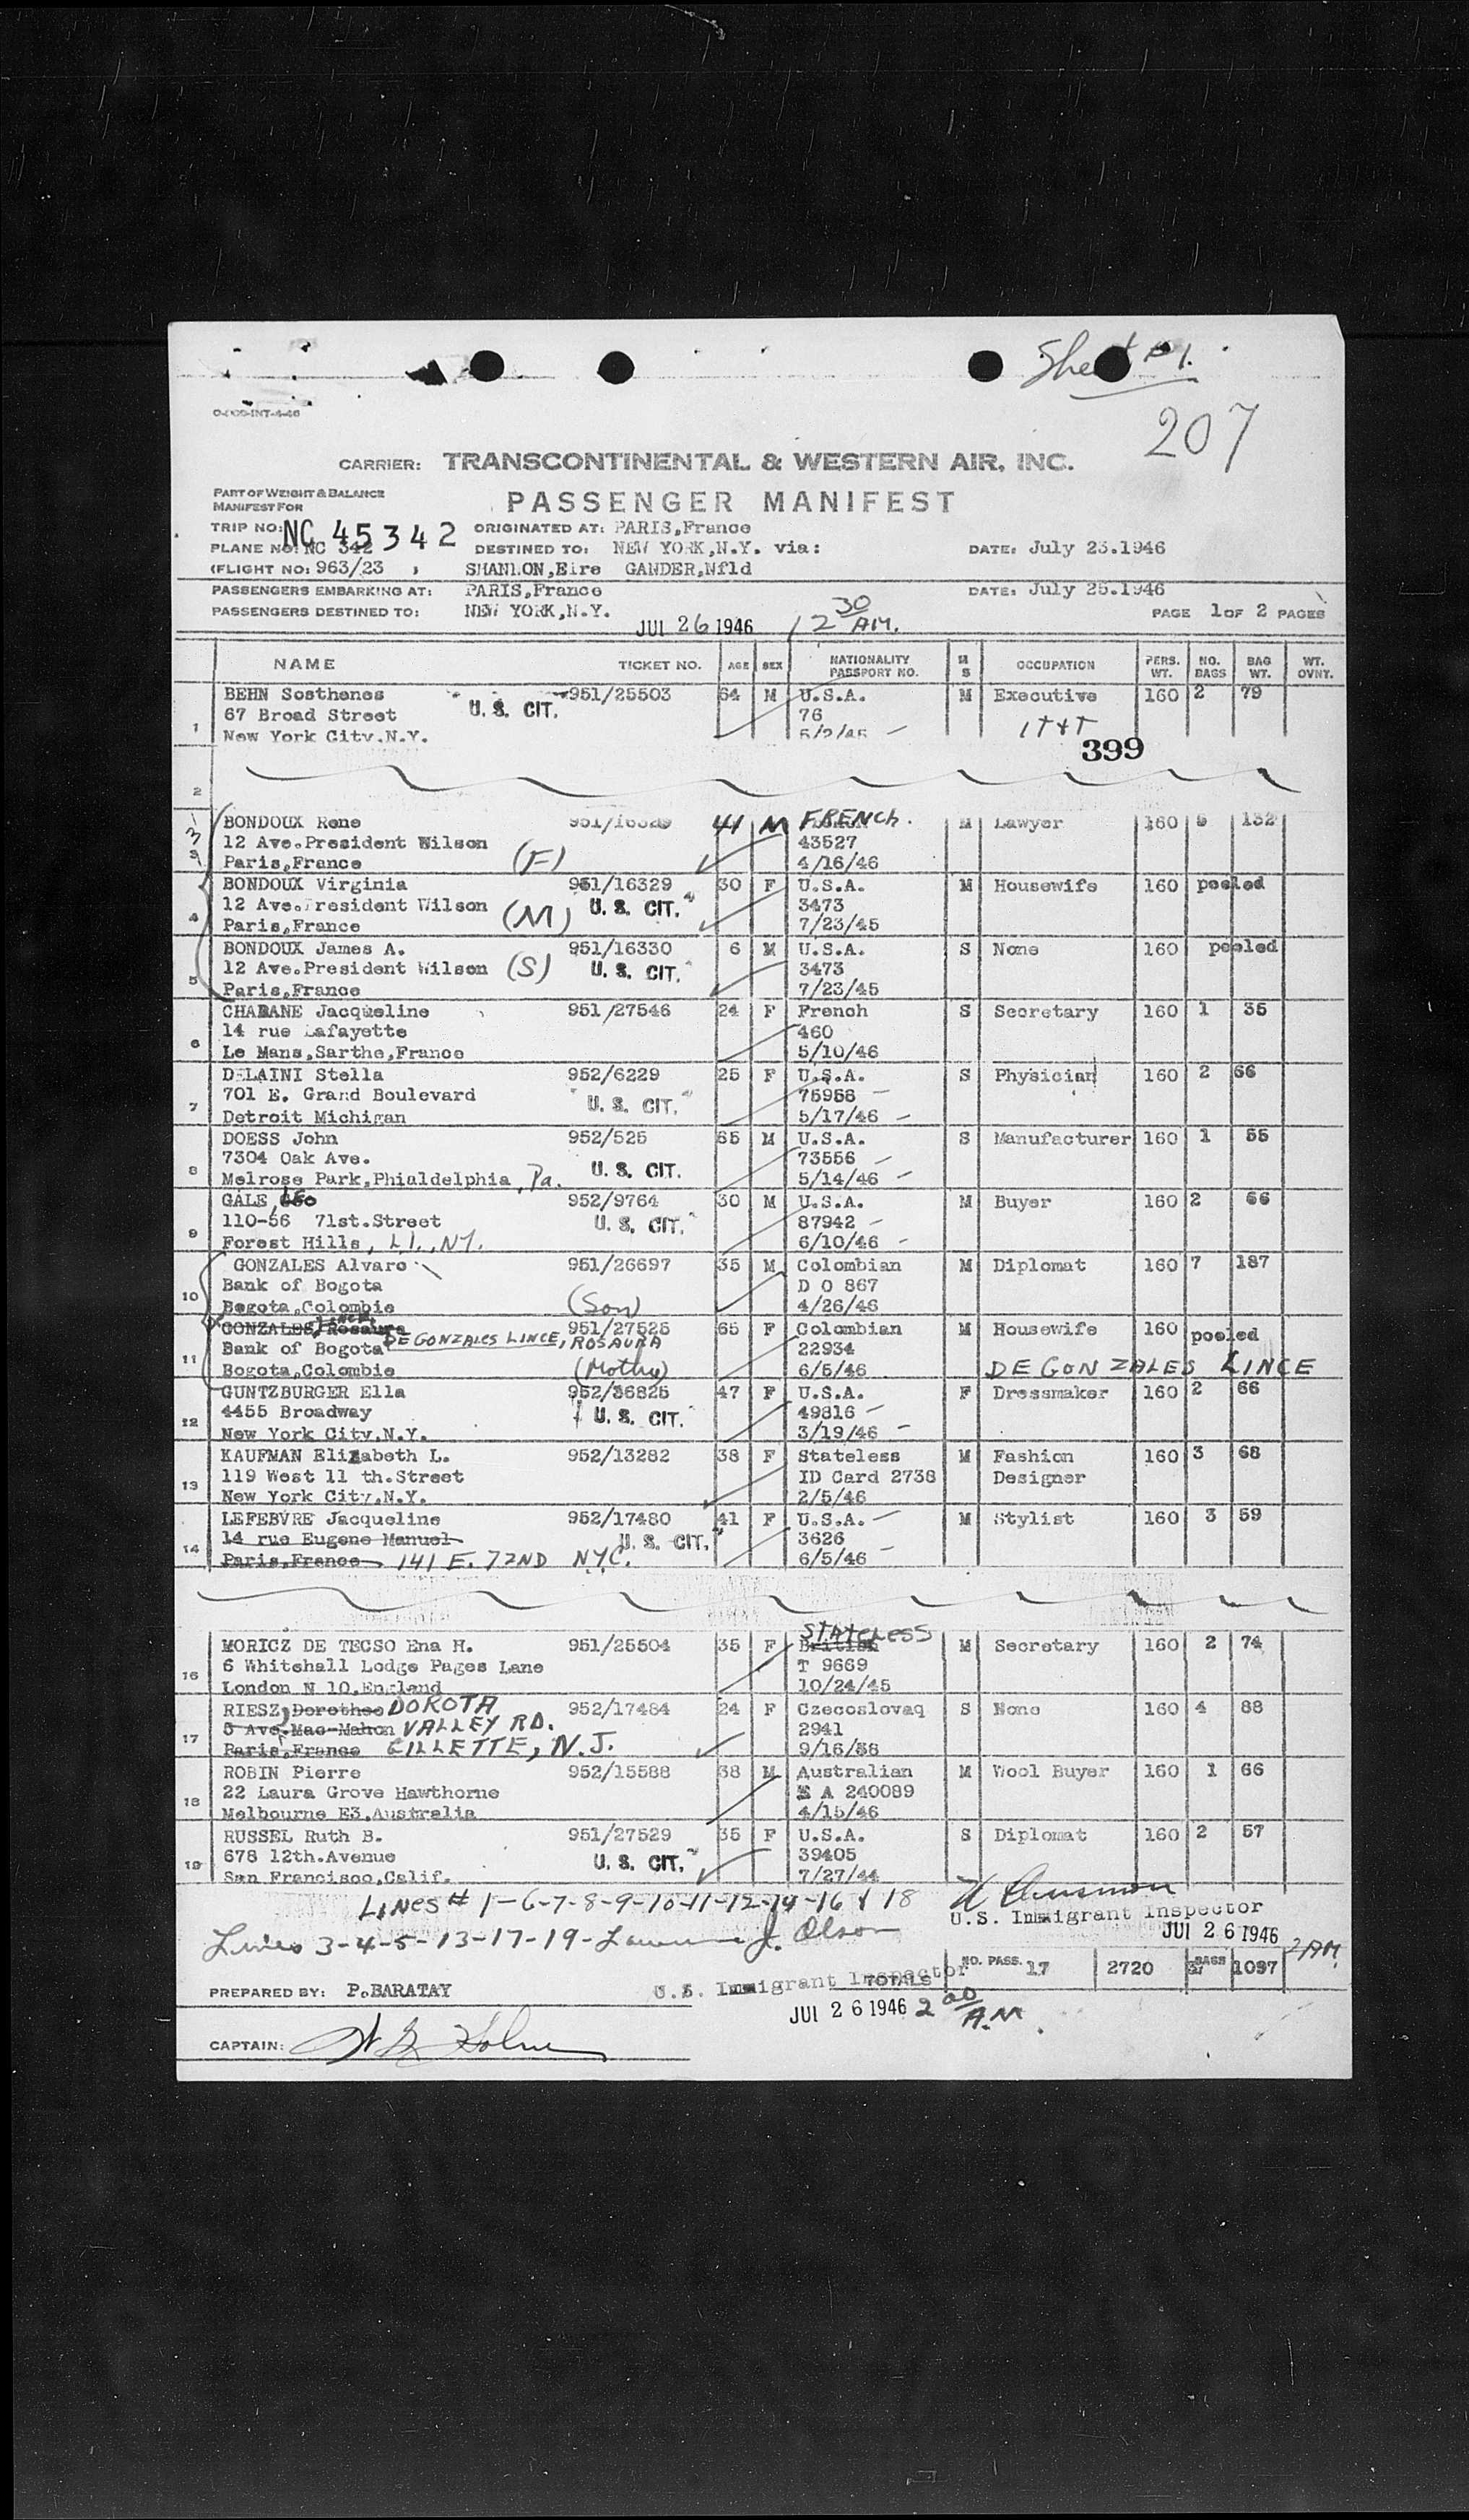 Sheet # 1.
207
CARRIER: TRANSCONTINENTAL & WESTERN AIR, INC.
PART OF WEIGHT & BALANCE
MANIFEST FOR
PASSENGER MANIFEST
TRIP NO: NC 45342 ORIGINATED AT: PARIS,France
PLANE NO: NC 342 DESTINED TO: NEW YORK,N.Y. via: DATE: July 23.1946
(FLIGHT NO: 963/23 ) SHANNON,Eire GANDER,Nfld
PASSENGERS EMBARKING AT: PARIS,France DATE: July 25.1946
PASSENGERS DESTINED TO: NEW YORK,N.Y. PAGE 1 OF 2 PAGES
JUL 26 1946 12 30 AM.
NAME TICKET NO. AGE SEX NATIONALITY PASSPORT NO. M S OCCUPATION PERS. WT. NO. BAGS BAG WT. WT. OVNT.
BEHN Sosthenes 951/25503 64 M U.S.A. M Executive 160 2 79
67 Broad Street U. S. CIT. 76 IT&T
1 New York City.N.Y. 5/2/46
399
2
BONDOUX Rene 41 M FRENCH. M Lawyer 160 132
3 12 Ave.President Wilson 43527
Paris,France (F) 4/16/46
BONDOUX Virginia 951/16329 30 F U.S.A. M Housewife 160 pooled
4 12 Ave.President Wilson (M) U. S. CIT. 3473
Paris,France 7/23/45
BONDOUX James A. 951/16330 6 M U.S.A. S None 160 pooled
12 Ave.President Wilson (S) U. S. CIT. 3473
5 Paris,France 7/23/45
CHABANE Jacqueline 951/27546 24 F French S Secretary 160 1 35
14 rue Lafayette 460
6 Le Mans,Sarthe,France 5/10/46
DELAINI Stella 952/6229 25 F U.S.A. S Physician 160 2 66
701 E. Grand Boulevard U. S. CIT. 75958
7 Detroit Michigan 5/17/46
DOESS John 952/525 65 M U.S.A. S Manufacturer 160 1 55
7304 Oak Ave. U. S. CIT. 73556
8 Melrose Park,Phialdelphia , Pa. 5/14/46
GALE, Leo 952/9764 30 M U.S.A. M Buyer 160 2 66
110-56 71st.Street U. S. CIT. 87942
9 Forest Hills, L.I., N.Y. 6/10/46
GONZALES Alvaro 951/26697 35 M Colombian M Diplomat 160 7 187
Bank of Bogota D O 867
10 Bogota,Colombie (Son) 4/26/46
GONZALES, LINCE Rosaura 951/27525 65 F Colombian M Housewife 160 pooled
Bank of Bogota DE GONZALES LINCE, ROSAURA 22934
11 Bogota,Colombie (Mother) 6/5/46 DE GONZALES LINCE
GUNTZBURGER Ella 952/36825 47 F U.S.A. F Dressmaker 160 2 66
4455 Broadway U. S. CIT. 49816
12 New York City.N.Y. 3/19/46
KAUFMAN Elizabeth L. 952/13282 38 F Stateless M Fashion 160 3 68
119 West 11 th.Street ID Card 2738 Designer
13 New York City.N.Y. 2/5/46
LEFEBVRE Jacqueline 952/17480 41 F U.S.A. M Stylist 160 3 59
14 14 rue Eugene Manuel U. S. CIT. 3626
Paris,France 141 E. 72ND NYC. 6/5/46
STATELESS
MORICZ DE TECSO Ena H. 951/25504 35 F British M Secretary 160 2 74
16 6 Whitehall Lodge Pages Lane T 9669
London N 10,England 10/24/45
RIESZ, Dorothee DOROTA 952/17484 24 F Czecoslovaq S None 160 4 88
5 Ave.Mac-Mahon VALLEY RD. 2941
17 Paris,France GILLETTE, N.J. 9/16/38
ROBIN Pierre 952/15588 38 M Australian M Wool Buyer 160 1 66
22 Laura Grove Hawthorne E A 240089
18 Melbourne E3,Australia 4/15/46
RUSSEL Ruth B. 951/27529 35 F U.S.A. S Diplomat 160 2 57
678 12th.Avenue U. S. CIT. 39405
19 San Francisco,Calif. 7/27/44
LINES # 1-6-7-8-9-10-11-12-14-16 & 18
U.S. Immigrant Inspector
JUL 26 1946 2 AM
Lines 3-4-5-13-17-19- Lawrence J. Olson
U.S. Immigrant Inspector
TOTALS NO. PASS. 17 2720 BAGS 37 1097
PREPARED BY: P.BARATAY
JUL 26 1946 2 00 A.M.
CAPTAIN: